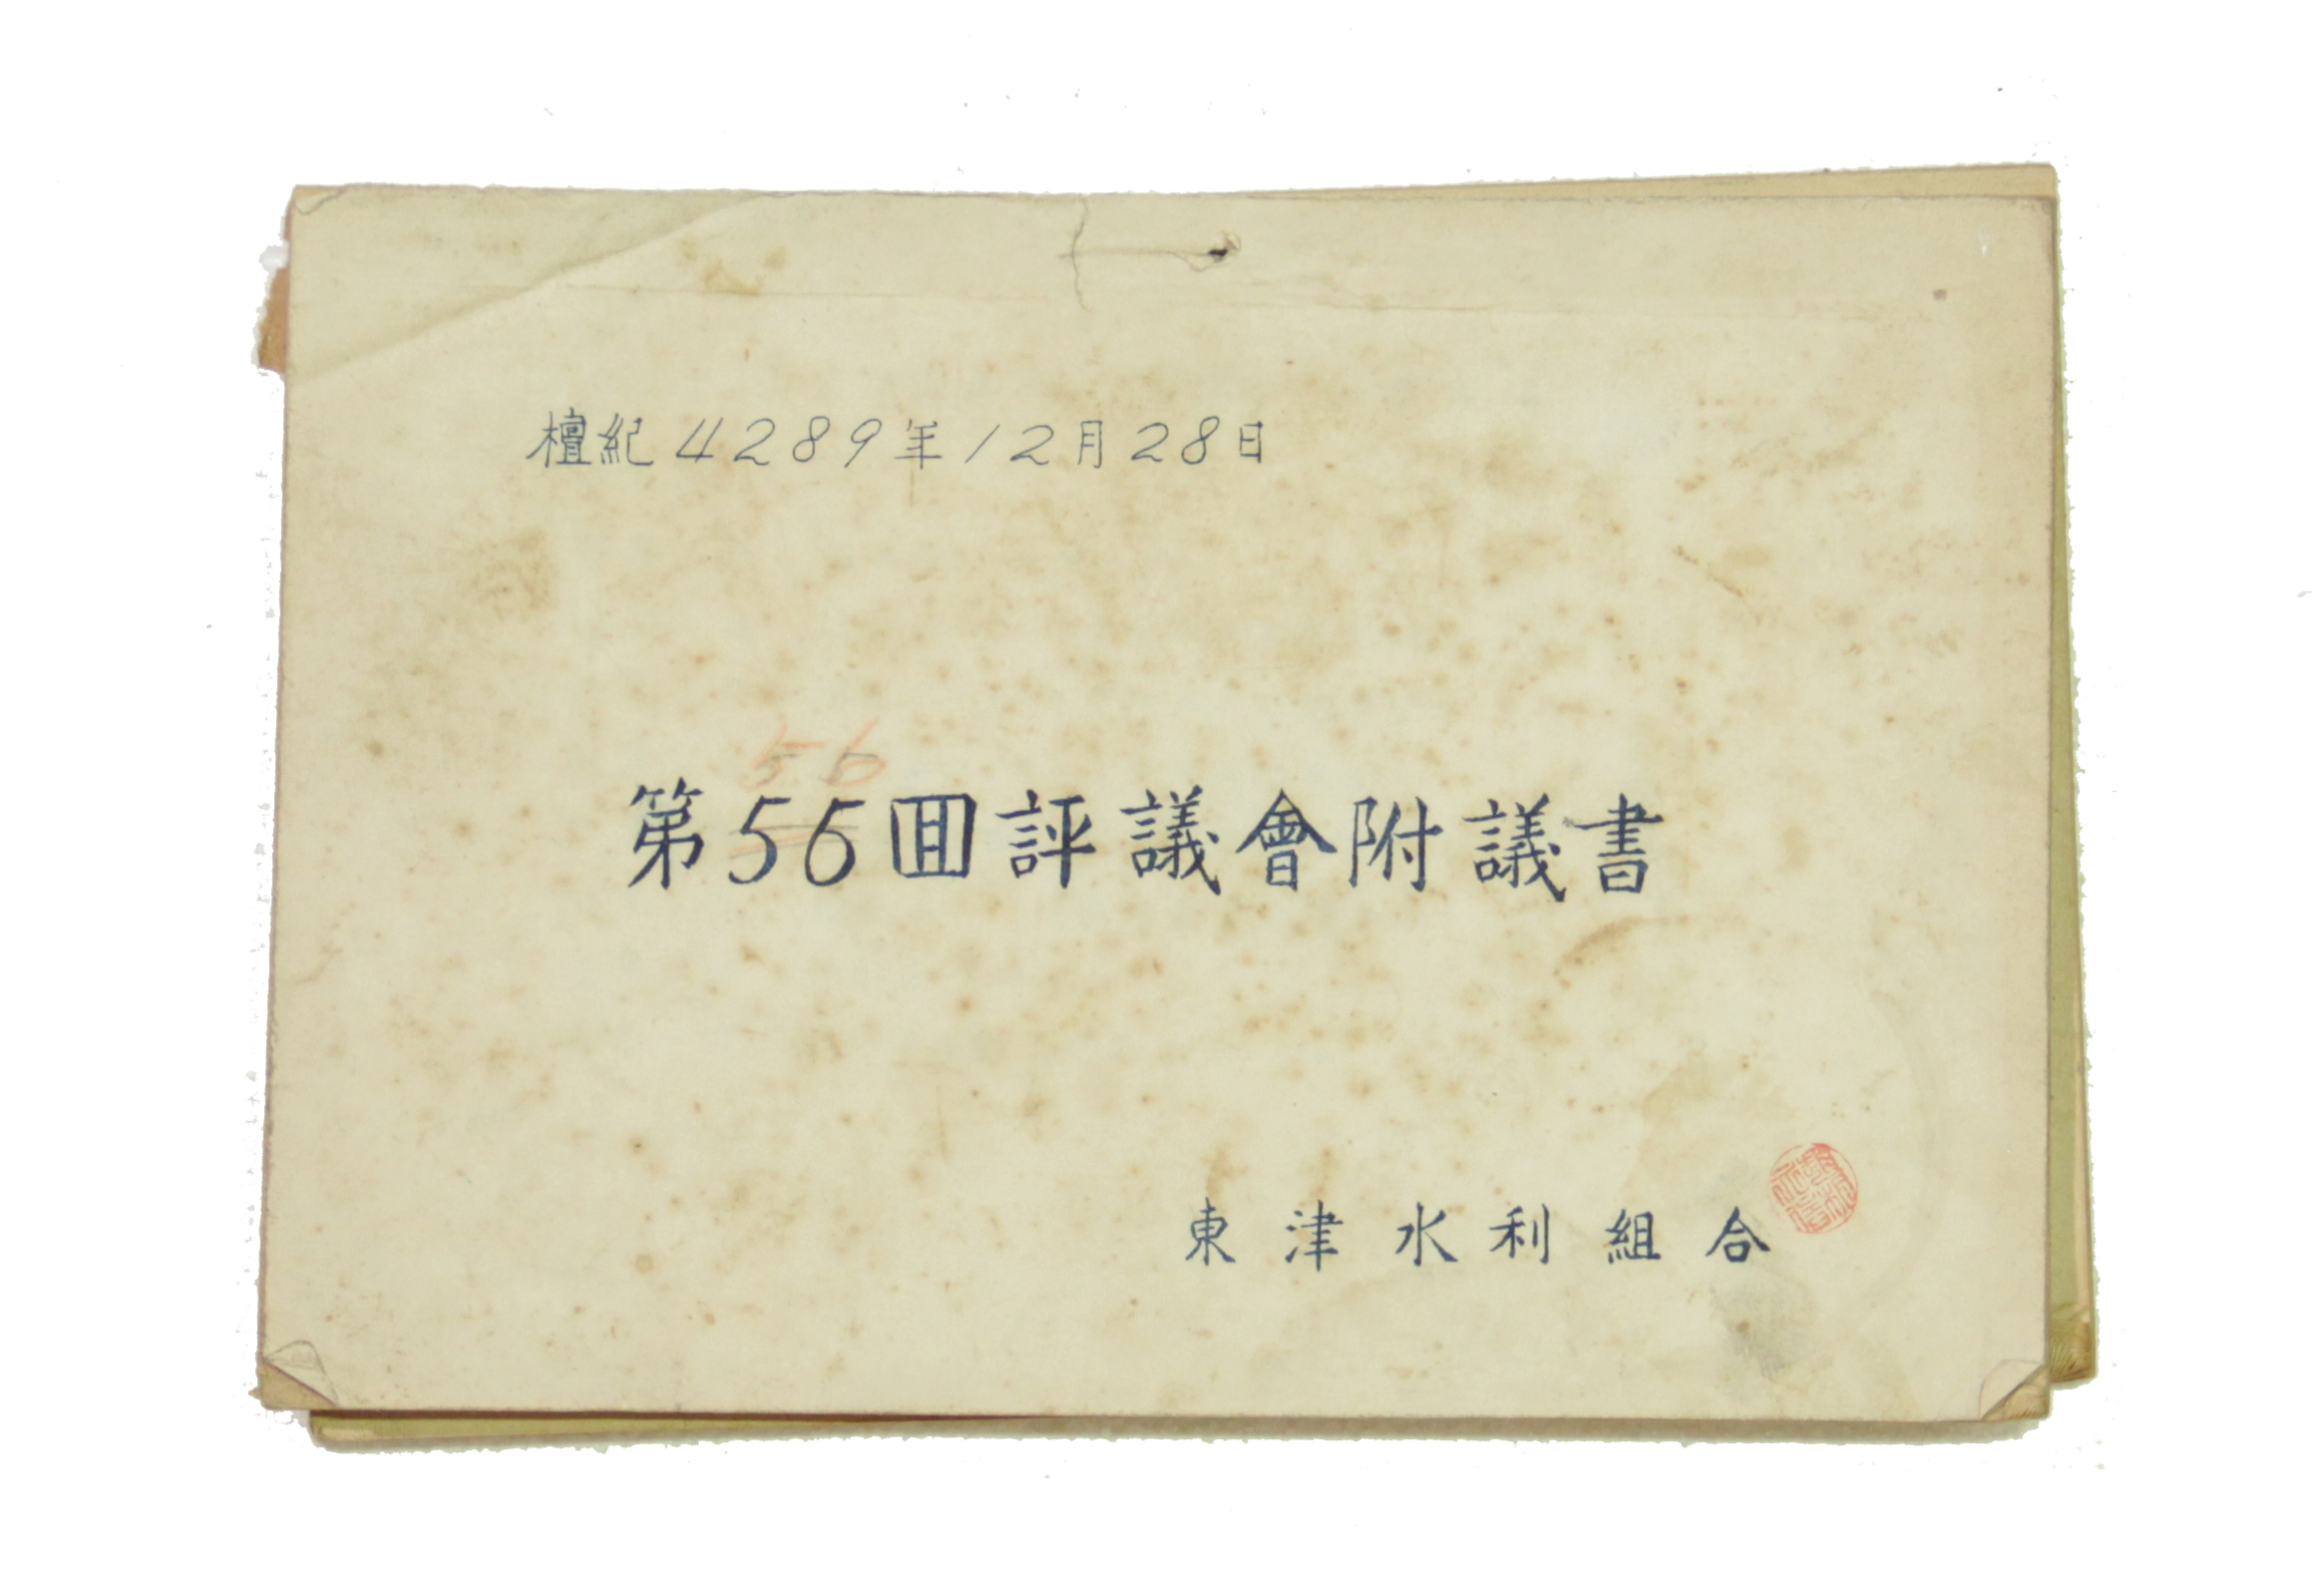 檀紀4289年12月28日
56
第56囬評議會附議書
東津水利組合